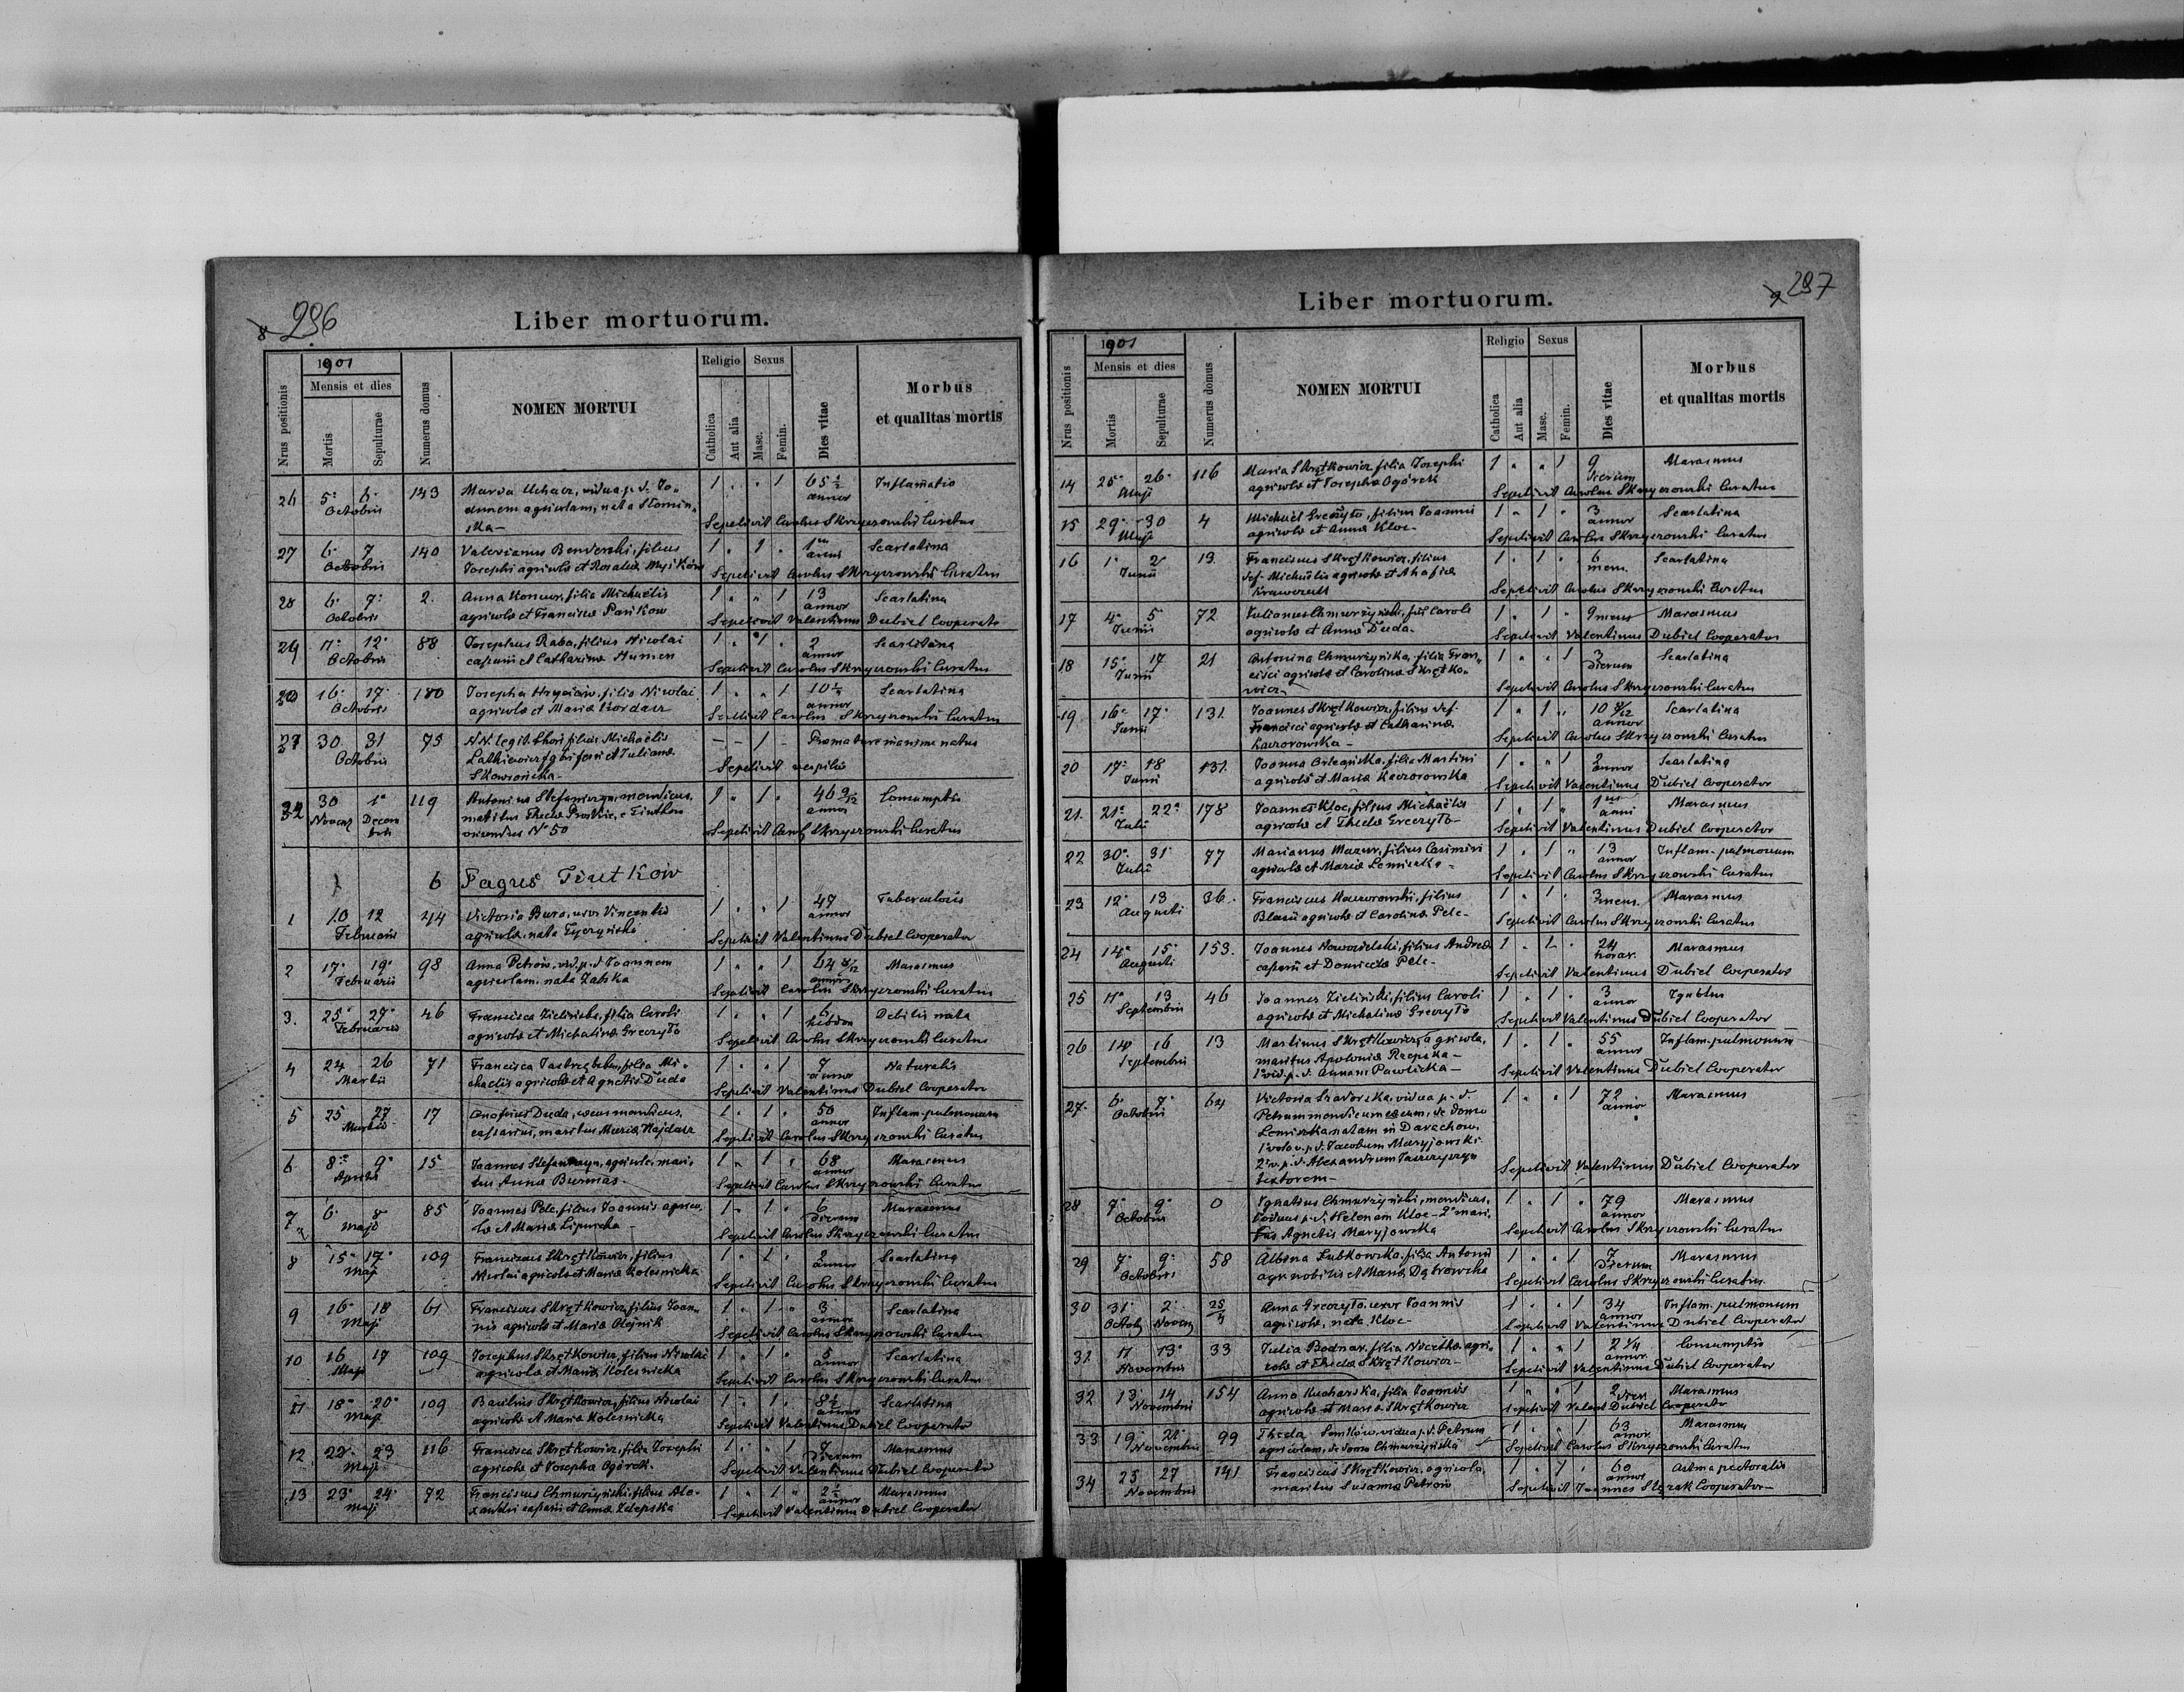 8 296
Liber mortuorum.
1901
Mensis et dies
Nrus positionis
Mortis
Sepulturae
Numerus domus
NOMEN MORTUI
Religio
Sexus
Catholica
Aut alia
Masc.
Femin.
Dies vitae
Morbus
et qualitas mortis
26 5. 6. 143 Maria Uchacz, vidua p. d. Jo- 1 " " 1 65 ½ Inflamatio
Octobris annor
annem agricolam, nata Słomin-
ska- Sepelivit Carolus Skrzyczowski Curatus
27 6. 7 140 Valerianus Benderski, filius 1 " 1 " 1 Scarlatina
Octobris Josephi agricola et Rosalia Sepelivit Carolus Skrzyczowski Curatus
28 6. 7. 2. Anna Koncur, filia Michaelis 1 " " 1 13 annor Scarlatina
Octobris agricola et Francisca Panikow Sepelivit Valentinus Dubiel Cooperato
29 11. 12. 88 Josephus Raba, filius Nicolai 1 " 1 . 2 annor Scarlatina
Octobris et Catharina Humen Sepelivit Carolus Skrzyczowski Curatus
16. 17. 180 Josepha Hryciow, filia Nicolai 1 " " 1 10 ½ annor Scarlatina
Octobris agricola et Maria Kordacz Sepelivit Carolus Skrzyczowski Curatus
30 31 75 NN. legit. thori filius Michaelis - - 1 - Praemature natus
Octobris et Juliana
Skowrońska- Sepelivit
32 30 1. 119 Antoninus Stefaniszyn, mendicus, 1 " 1 " 46 9/12 Consumptio
Novem Decem annor
bris maritus Thecla e Tiutkow
oriundus No 50 Sepelivit Carol Skrzyczowski Curatus
6 Pagus Tiutków
1 10 12 44 Victoria Bura, uxor Vincentii 1 " " 1 47 annor Tuberculosis
Februarii agricola, nata Tyczyńska Sepelivit Valentinus Dubiel Cooperator
2 17. 19. 98 Anna Petrów, vid. p. d. Joannem 1 " " 1 64 annor Marasmus
Februarii agricolam, nata Zabska Sepelivit Carolus Skrzyczowski Curatus
3. 25. 27. 46 Francisca Zielińska, filia Caroli 1 " " 1 6 hebdom Debilis nata
Februarii agricola et Michalina Greczyło Sepelivit Carolus Skrzyczowski Curatus
4 24 26 71 Francisca Jastrzębska, filia Mi- 1 " " 1 7 annor Naturalis
Martii chaelis agricola et Agnetis Duda Sepelivit Valentinus Dubiel Cooperator
5 25 27 17 Onofrius Duda, caecus mendicus, 1 " 1 " 50 annor Inflam. pulmonum
Martii casarius, maritus Maria Hajdacz Sepelivit Carolus Skrzyczowski Curatus
6 8. 9. 15 Joannes Stefaniszyn, agricola, mari- 1 " 1 " 68 annor Marasmus
Aprilis tus Anna Burmas. Sepelivit Carolus Skrzyczowski Curatus
7 6. 8 85 Joannes Pelc, filius Joannis agrico- 1 " 1 " 6 dierum Marasmus
Maji la et Maria Lipnicka - Sepelivit Carolus Skrzyczowski Curatus
8 15. 17. 109 Franciscus Skrętkowicz, filius 1 " 1 " 2 annor Scarlatina
Maji Nicolai agricola et Maria Kolesnicka Sepelivit Carolus Skrzyczowski Curatus
9 16. 18 61 Franciscus Skrętkowicz, filius Joan- 1 " 1 " 3 annor Scarlatina
Maji nis agricola et Maria Olejnik Sepelivit Carolus Skrzyczowski Curatus
10 16 17 109 Josephus Skrętkowicz, filius Nicolai 1 " 1 " 5 annor Scarlatina
Maji agricola et Maria Kolesnicka Sepelivit Carolus Skrzyczowski Curatus
11 18. 20. 109 Basilius Skrętkowicz, filius Nicolai 1 " 1 " 8 ½ annor Scarlatina
Maji agricola et Maria Kolesnicka Sepelivit Valentinus Dubiel Cooperato
12 22. 23 116 Francisca Skrętkowicz, filia Josephi 1 " " 1 7 Dierum Marasmus
Maji agricola et Josepha Ogórek. Sepelivit Valentinus Dubiel Cooperato
13 23. 24. 72 Franciscus Chmurzyński, filius Ale- 1 " 1 " 2 ½ annor Marasmus
Maji xandri casarii et Anna Zalepska Sepelivit Valentinus Dubiel Cooperator
9 297
Liber mortuorum.
1901
Mensis et dies
Nrus positionis
Mortis
Sepulturae
Numerus domus
NOMEN MORTUI
Religio
Sexus
Catholica
Aut alia
Masc.
Femin.
Dies vitae
Morbus
et qualitas mortis
14 25. 26. 116 Maria Skrętkowicz, filia Josephi 1 " " 1 9 Dierum Marasmus
Maji agricola et Josepha Ogórek Sepelivit Carolus Skrzyczowski Curatus
15 29. 30 4 Michael Greczyło, filius Joannis 1 " 1 " 3 annor Scarlatina
Maji agricola et Anna Kloc- Sepelivit Carolus Skrzyczowski Curatus
16 1. 2 13 Franciscus Skrętkowicz, filius 1 " 1 " 6 mens. Scarlatina
Junii def. Michaelis agricola et Ahafia
Krawczuk Sepelivit Carolus Skrzyczowski Curatus
17 4. 5 72 Julianus Chmurzyński, fil Caroli 1 " 1 " 9 mens Marasmus
Junii agricola et Anna Duda- Sepelivit Valentinus Dubiel Cooperator
18 15. 17 21 Antonina Chmurzyńska, filia Fran- 1 " " 1 3 Dierum Scarlatina
Junii cisci agricola et Carolina Skrętko-
wicz- Sepelivit Carolus Skrzyczowski Curatus
19 16. 17. 131. Joannes Skrętkowicz, filius def. 1 " 1 " 10 annor Scarlatina
Junii Francisci agricola et Catharina
Kaczorowska - Sepelivit Carolus Skrzyczowski Curatus
20 17. 18 131. Joanna filia Martini 1 " " 1 2 annor Scarlatina
Junii agricola et Maria Kaczorowska Sepelivit Valentinus Dubiel Cooperator
21. 21. 22. 178 Joannes Kloc, filius Michaelis 1 " 1 " 1 anni Marasmus
Julii agricola et Thecla Greczyło- Sepelivit Valentinus Dubiel Cooperator
22 30. 31. 77 Marianus Mazur, filius Casimiri 1 " 1 " 13 annor Inflam. pulmonum
Julii agricola et Maria Lemiszka- Sepelivit Carolus Skrzyczowski Curatus
23 12. 13 36. Franciscus Kaczorowski, filius 1 " 1 " 3 mens. Marasmus
Augusti Blasii agricola et Carolina Pelc- Sepelivit Carolus Skrzyczowski Curatus
24 14. 15. 153. Joannes Nowosielski, filius Andrea 1 " 1 " 24 horar. Marasmus
Augusti casarii et Domicela Pelc- Sepelivit Valentinus Dubiel Cooperator
25 11. 13 46 Joannes Zieliński, filius Caroli 1 " 1 " 3 annor Ignotus
Septembris agricola et Michalina Greczyło Sepelivit Valentinus Dubiel Cooperator
26 14 16 13 Martinus Skrętkowicz, agricola, 1 " 1 " 55 annor Inflam. pulmonum
Septembris maritus Apolonia Rzepska -
1o vid. p. d. Annam Pawlicka - Sepelivit Valentinus Dubiel Cooperator
27. 6. 7. 64 Victoria vidua p. d. 1 " " 1 72 annor Marasmus
Octobris Petrum mendicum caecum, de domo
Lemiszka natam in Darachow,
1o voto v. p. d. Jacobum Maryjowski
2o v. p. d. Alexandrum
textorem- Sepelivit Valentinus Dubiel Cooperator
28 7. 9. 0 Ignatius Chmurzyński, mendicus, 1 " 1 " 79 annor Marasmus
Octobris viduus p. d. Helenam Kloc- 2o mari-
tus Agnetis Maryjowska Sepelivit Carolus Skrzyczowski Curatus
29 7. 9. 58 Albina Łubkowska, filia Antonii 1 " " 1 7 Dierum Marasmus
Octobris agr. nobilis et Maria Dąbrowska Sepelivit Carolus Skrzyczowski Curatus.
30 31. 2. 25/4 Anna Greczyło, uxor Joannis 1 " " 1 34 annor Inflam. pulmonum
Octob Novem agricola, nata Kloc- Sepelivit Valentinus Dubiel Cooperator
31. 11 13. 33 Julia Bodnar, filia agri- 1 " " 1 2 ¼ annor Consumptio
Novembris cola et Thecla Skrętkowicz- Sepelivit Valentinus Dubiel Cooperator
32 13. 14 154 Anna Kucharska, filia Joannis 1 " " 1 2 dier. Marasmus
Novembris agricola et Maria Skrętkowicz Sepelivit Valent Dubiel Cooperator
33 19. 21. 99 Thecla Semków, vidua p. d. Petrum 1 " " 1 63 annor Marasmus
Novembris agricolam, de domo Chmurzyńska Sepelivit Carolus Skrzyczowski Curatus
34 25 27 141 Franciscus Skrętkowicz, agricola, 1 " 1 " 60 annor Astma pectoralis
Novembris maritus Susanna Petrów Sepelivit Joannes Cooperator-